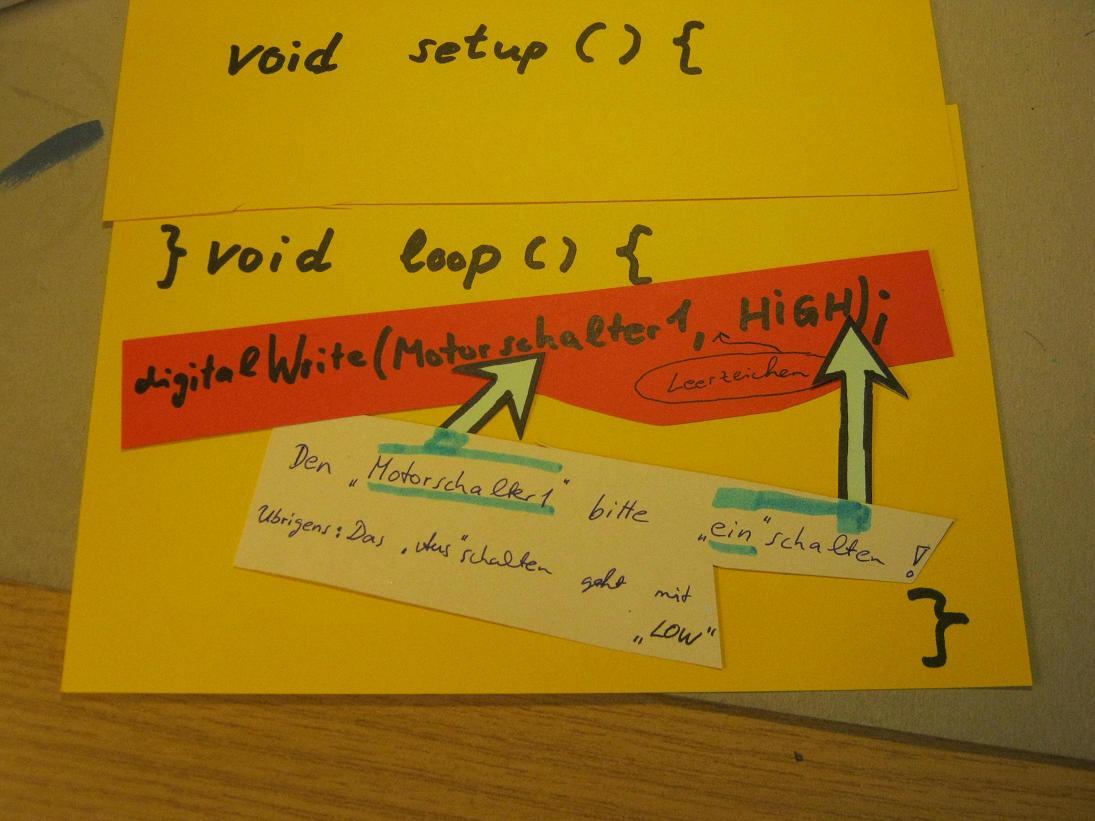 void setup () {
} void loop () {
digitalWrite(Motorschalter1, HiGH);
Leerzeichen
Den „Motorschalter1" bitte „ein"schalten !
Übrigens: Das „Aus"schalten geht mit
„LOW"
}